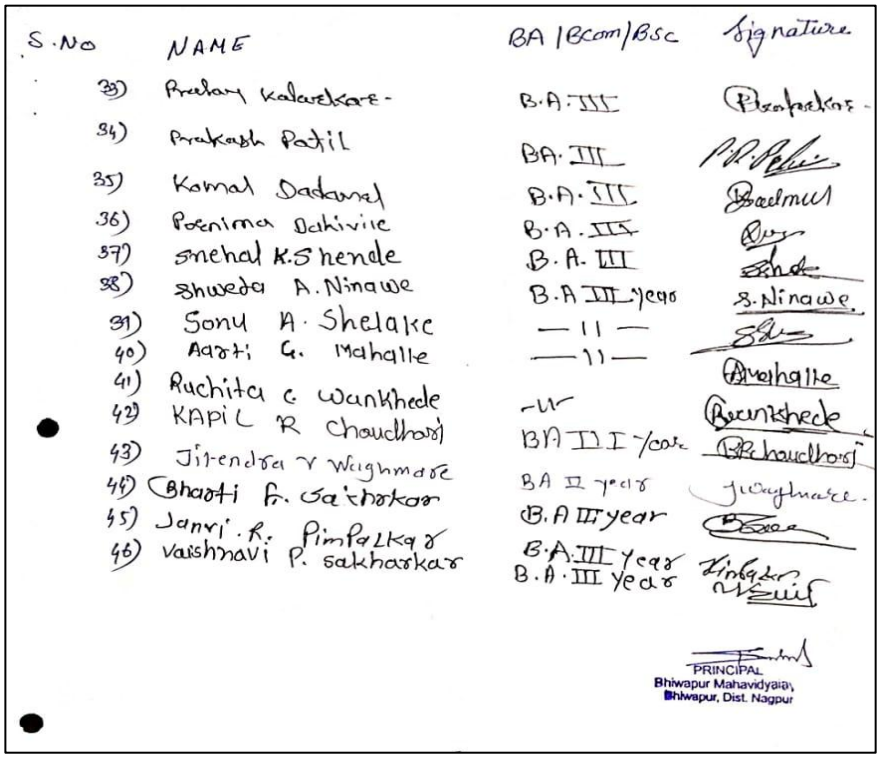 S.No NAME BA/Bcom/Bsc Signature
33) B.A. III
34) Prakash Patil BA. III
35) Komal Dadamal B.A. III
36) Poenima Dahivile B.A. III
37) Snehal K. Shende B.A. III
38) Shweta A. Ninawe B.A III year S. Ninawe.
39) Sonu A. Shelake — 11 —
40) Aarti G. Mahalle — 11 — Amahalle
41) Ruchita G Wankhede -11-
42) KAPIL R Choudhari BA III year
43) Jitendra V Waghmare BA II year Jwaghmare.
44) Bharti B.A III year
45) Janvi. R. Pimpalkar B.A. III year
46) Vaishnavi P. Sakharkar B.A. III year
PRINCIPAL
Bhiwapur Mahavidyalay
Bhiwapur, Dist. Nagpur